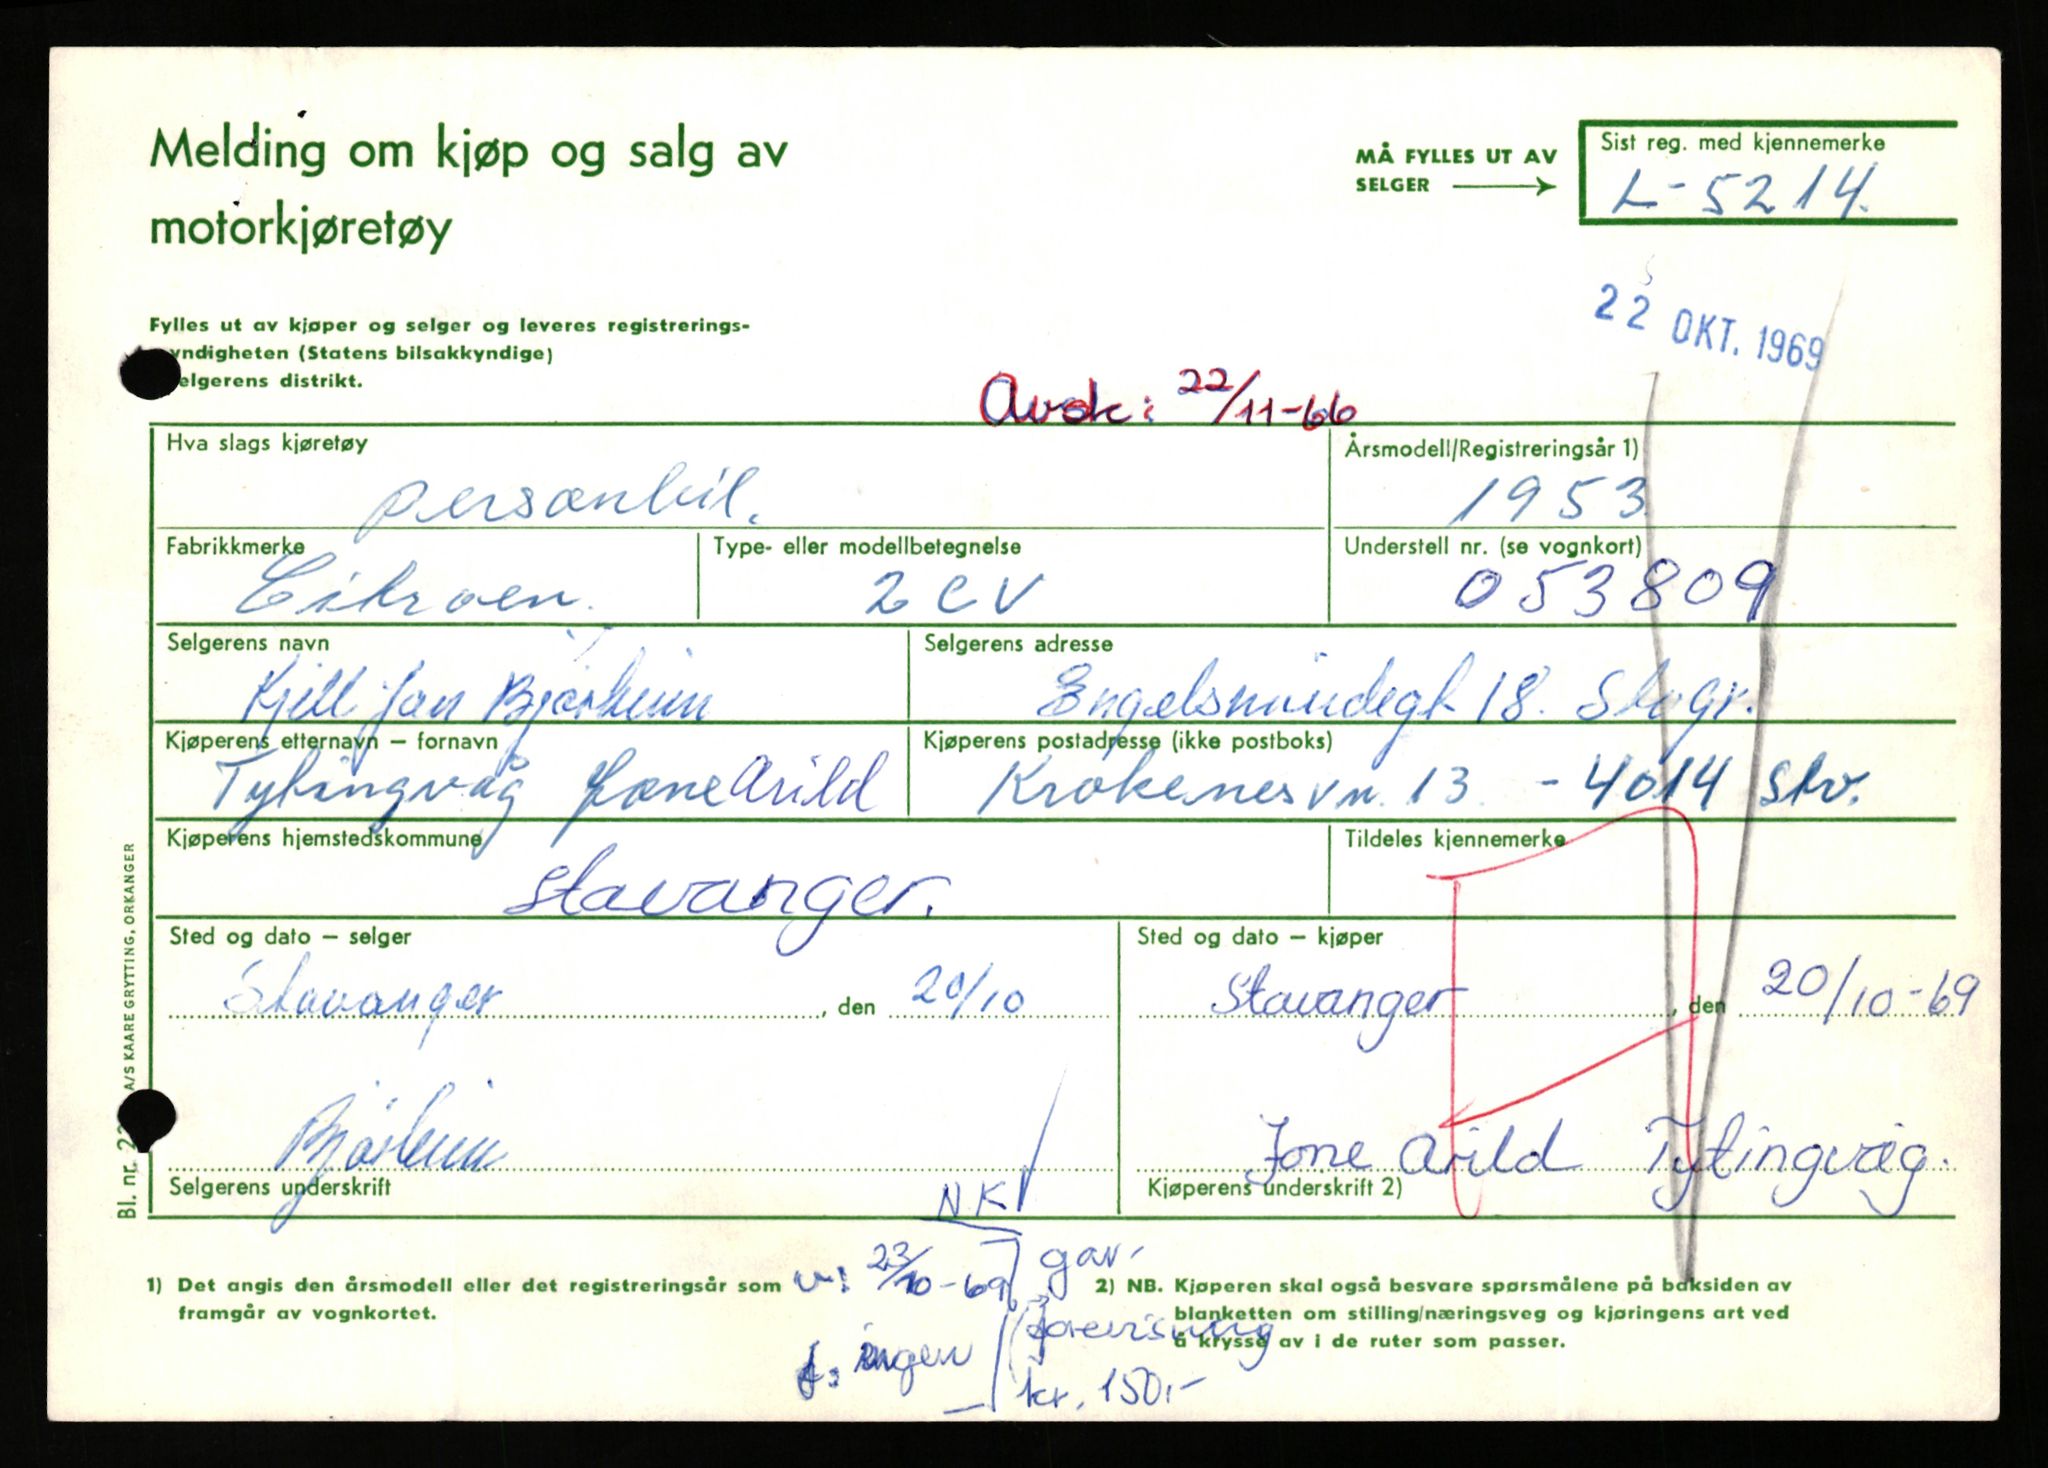 Melding om kjøp og salg av
motorkjøretøy
MÅ FYLLES UT AV
SELGER
Sist reg. med kjennemerke
L-5214.
22 OKT. 1969
Fylles ut av kjøper og selger og leveres registrerings-
yndigheten (Statens bilsakkyndige)
elgerens distrikt.
Avsk: 22/11-66
Hva slags kjøretøy
personbil.
Årsmodell/Registreringsår 1)
1953
Fabrikkmerke
Citroen.
Type- eller modellbetegnelse
2 CV
Understell nr. (se vognkort)
053809
Selgerens navn
Kjell Jan Bjørheim
Selgerens adresse
Engelsmindegt 18. Stvgr.
Kjøperens etternavn – fornavn
Tytingvåg Jone Arild
Kjøperens postadresse (ikke postboks)
Krokenesvn. 13 - 4014 Stv.
Kjøperens hjemstedskommune
Stavanger.
Tildeles kjennemerke
Sted og dato – selger
Stavanger, den 20/10
Sted og dato – kjøper
Stavanger, den 20/10-69
Bjørheim
Selgerens underskrift
Jone Arild Tytingvåg.
Kjøperens underskrift 2)
N.K.
v: 23/10-69
gar.
f: ingen
forevisning
kr. 150.-
1) Det angis den årsmodell eller det registreringsår som
framgår av vognkortet.
2) NB. Kjøperen skal også besvare spørsmålene på baksiden av
blanketten om stilling/næringsveg og kjøringens art ved
å krysse av i de ruter som passer.
Bl. nr. A/S KAARE GRYTTING, ORKANGER